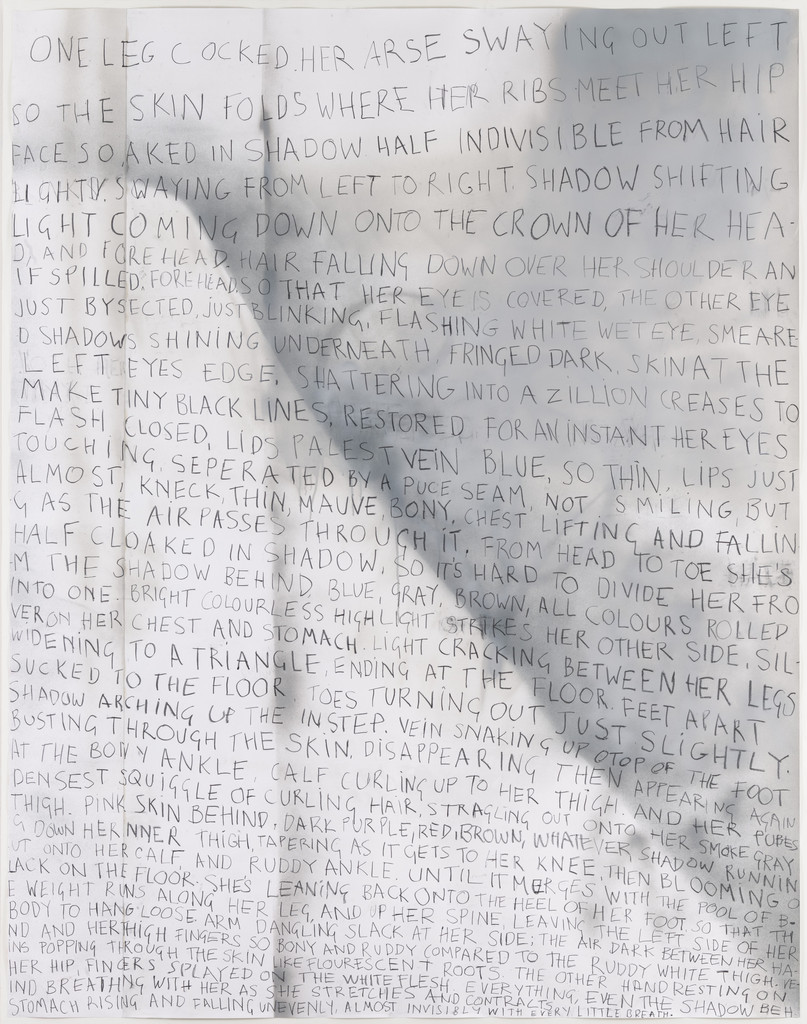 ONE LEG COCKED. HER ARSE SWAYING OUT LEFT
SO THE SKIN FOLDS WHERE HER RIBS MEET HER HIP
FACE SOAKED IN SHADOW HALF INDIVISIBLE FROM HAIR
LIGHTLY. SWAYING FROM LEFT TO RIGHT. SHADOW SHIFTING
LIGHT COMING DOWN ONTO THE CROWN OF HER HEA-
D, AND FOREHEAD, HAIR FALLING DOWN OVER HER SHOULDER AN
IF SPILLED, FOREHEAD, SO THAT HER EYE IS COVERED, THE OTHER EYE
JUST BYSECTED, JUST BLINKING, FLASHING WHITE WET EYE, SMEARE
D SHADOWS SHINING UNDERNEATH, FRINGED DARK. SKIN AT THE
LEFT EYES EDGE, SHATTERING INTO A ZILLION CREASES TO
MAKE TINY BLACK LINES, RESTORED. FOR AN INSTANT HER EYES
FLASH CLOSED, LIDS PALEST VEIN BLUE, SO THIN, LIPS JUST
TOUCHING, SEPERATED BY A PUCE SEAM, NOT SMILING, BUT
ALMOST, KNECK, THIN, MAUVE, BONY, CHEST LIFTING AND FALLIN
G AS THE AIR PASSES THROUGH IT. FROM HEAD TO TOE SHE'S
HALF CLOAKED IN SHADOW, SO IT'S HARD TO DIVIDE HER FRO
M THE SHADOW BEHIND, BLUE, GRAY, BROWN, ALL COLOURS ROLLED
INTO ONE. BRIGHT COLOURLESS HIGHLIGHT STRIKES HER OTHER SIDE, SIL-
VER ON HER CHEST AND STOMACH. LIGHT CRACKING BETWEEN HER LEGS
WIDENING TO A TRIANGLE, ENDING AT THE FLOOR. FEET APART
SUCKED TO THE FLOOR. TOES TURNING OUT JUST SLIGHTLY.
SHADOW ARCHING UP THE INSTEP. VEIN SNAKING UP OTOP OF THE FOOT
BUSTING THROUGH THE SKIN, DISAPPEARING THEN APPEARING AGAIN
AT THE BONY ANKLE, CALF CURLING UP TO HER THIGH. AND HER PUBES
DENSEST SQUIGGLE OF CURLING HAIR, STRAGLING OUT ONTO HER SMOKE GRAY
THIGH. PINK SKIN BEHIND, DARK PURPLE, RED, BROWN, WHATEVER SHADOW RUNNIN
G DOWN HER NNER THIGH, TAPERING AS IT GETS TO HER KNEE. THEN BLOOMING O
UT ONTO HER CALF AND RUDDY ANKLE. UNTIL IT MERGES WITH THE POOL OF B-
LACK ON THE FLOOR. SHE'S LEANING BACK ONTO THE HEEL OF HER FOOT. SO THAT TH
E WEIGHT RUNS ALONG HER LEG, AND UP HER SPINE, LEAVING THE LEFT SIDE OF HER
BODY TO HANG LOOSE ARM DANGLING SLACK AT HER SIDE; THE AIR DARK BETWEEN HER HA-
ND AND HER THIGH FINGERS SO BONY AND RUDDY COMPARED TO THE RUDDY WHITE THIGH. VE-
INS POPPING THROUGH THE SKIN LIKE FLOURESCENT ROOTS. THE OTHER HAND RESTING ON
HER HIP, FINGERS SPLAYED ON THE WHITE FLESH, EVERYTHING, EVEN THE SHADOW BEH
IND BREATHING WITH HER AS SHE STRETCHES AND CONTRACTS,
STOMACH RISING AND FALLING UNEVENLY, ALMOST INVISIBLY WITH EVERY LITTLE BREATH.